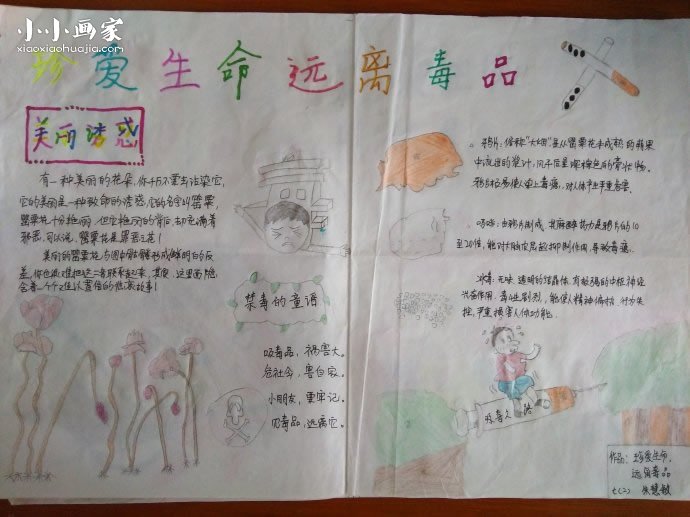 小小画家
xiaoxiaohuajia.com
珍爱生命远离毒品
美丽诱惑
有一种美丽的花朵,你千万不要去沾染它,
它的美丽是一种致命的诱惑,它的名字叫罂粟,
罂粟花十分艳丽,但它艳丽的背后,却充满着
邪恶,可以说,罂粟花是罪恶之花!
美丽的罂粟花,与图中骷髅形成鲜明的反
差,你也很难把这二者联系起来,其实,这里面隐
含着一个个
悲哀故事!
禁毒的童谣
吸毒品,祸害大。
危社会,害自家。
小朋友,要牢记。
吸毒品,远离它。
鸦片:俗称"大烟"是从罂粟花未成熟的蒴果
中流出的浆汁,风干后呈深棕色的膏状物。
鸦片极易使人染上毒瘾,对人体产生严重危害。
吗啡:由鸦片制成,其麻醉药力是鸦片的10
至20倍,能对大脑皮层起抑制作用,导致毒瘾。
冰毒:无味,透明的结晶体,有极强的中枢神经
兴奋作用,毒性剧烈,能使人精神偏执,行为失
控,严重损害人体功能。
吸毒之路
作品:珍爱生命,
远离毒品
七(2) 朱慧敏